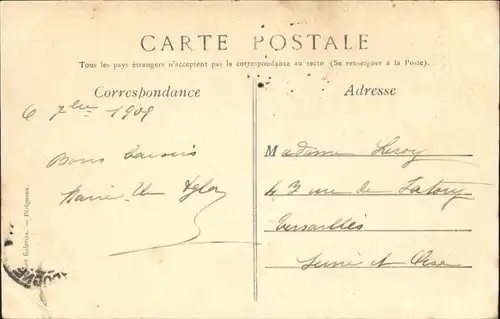 CARTE POSTALE
Tous les pays étrangers n'acceptent pas la correspondance au recto (Se renseigner à la Poste).
Correspondance
Adresse
6 7bre 1909
Bons baisers
Marie
Madame Leroy
43 rue de Satory
Versailles
Seine et Oise
Galeries. — Périgueux.